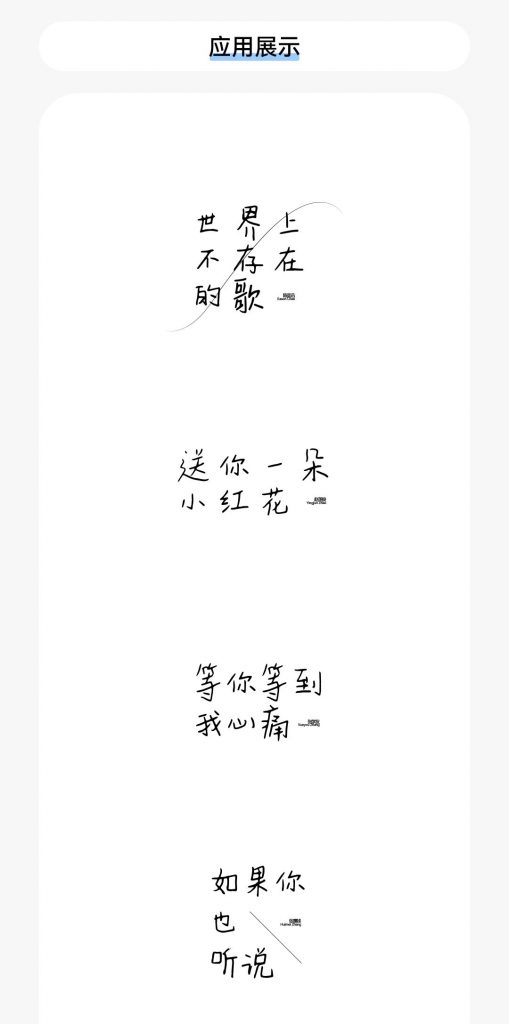 应用展示
世界上
不存在
的歌
送你一朵
小红花
等你等到
我心痛
如果你
也
听说